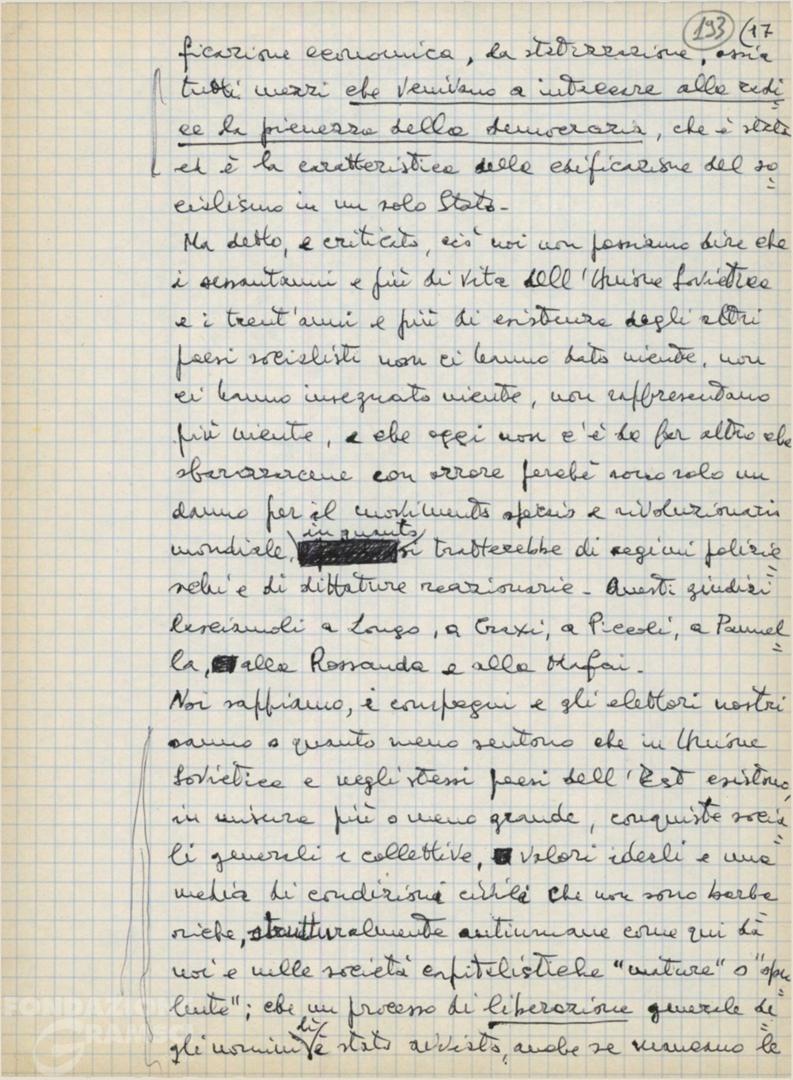 193 (17
ficazione economica, la statizzazione, ossia
tutti mezzi che venivano a intaccare alla radi
ce la pienezza della democrazia, che è stata
ed è la caratteristica della edificazione del so=
cialismo in un solo Stato -
Ma detto, e criticato, ciò noi non possiamo dire che
i sessantanni e più di vita dell'Unione Sovietica
e i trent'anni e più di esistenza degli altri
paesi socialisti non ci hanno dato niente, non
ci hanno insegnato niente, non rappresentano
più niente, e che oggi non c'è da far altro che
sbarazzarcene con orrore perché sono solo un
danno per il movimento operaio e rivoluzionario
in quanto
mondiale, si tratterebbe di regimi polizie=
schi e di dittature reazionarie - Questi giudizi
lasciamoli a Longo, a Craxi, a Piccoli, a Pannel=
la, alla Rossanda e alla Mafai.
Noi sappiamo, i compagni e gli elettori nostri
sanno o quanto meno sentono che in Unione
Sovietica e negli stessi paesi dell'Est esistono,
in misura più o meno grande, conquiste socia=
li generali e collettive, valori ideali e una
media di condizioni civili che non sono barba=
riche, strutturalmente antiumane come qui da
noi e nelle società capitalistiche "mature" o "opu=
lente"; che un processo di liberazione generale de=
lì
gli uomini è stato avviato, anche se nemmeno le
FONDAZIONE
GRAMSCI